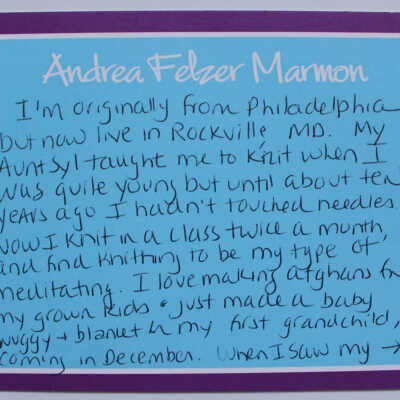 Andrea Felzer Marmon
I'm originally from Philadelphia
but now live in Rockville, MD. My
Aunt Syl taught me to knit when I
was quite young but until about ten
years ago I hadn't touched needles.
Now I knit in a class twice a month,
and find knitting to be my type of
meditating. I love making afghans for
my grown kids & just made a baby
+ blanket for my first grandchild,
coming in December. When I saw my →